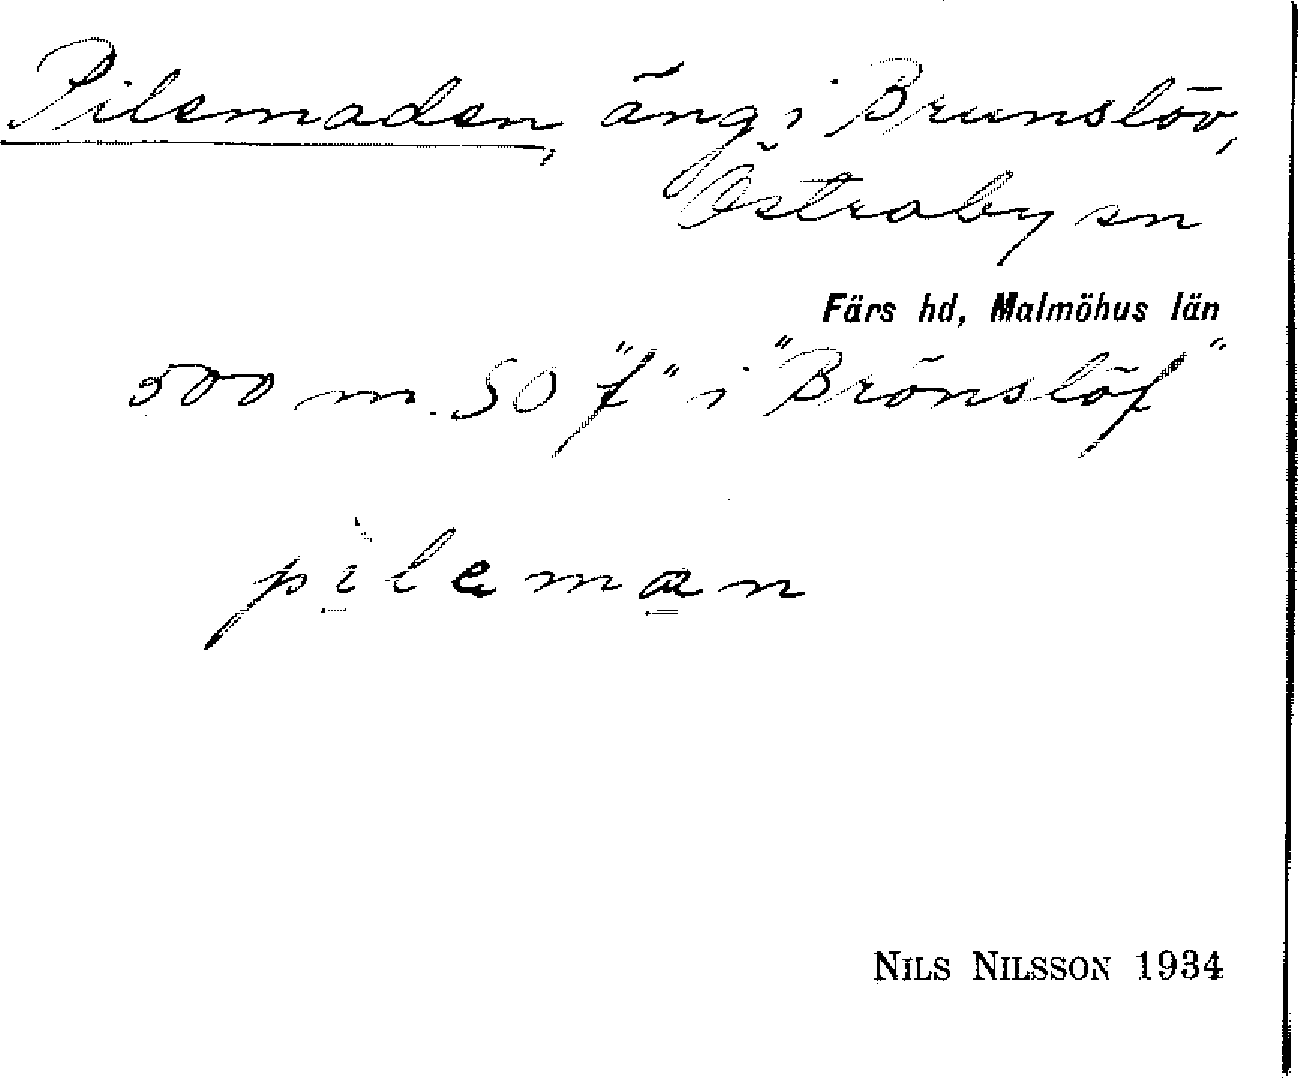 Pilemaden, äng i Brunslöv,
Östraby sn
Färs hd, Malmöhus län
500 m. SO "f" i "Brönslöf"
pileman
NILS NILSSON 1934